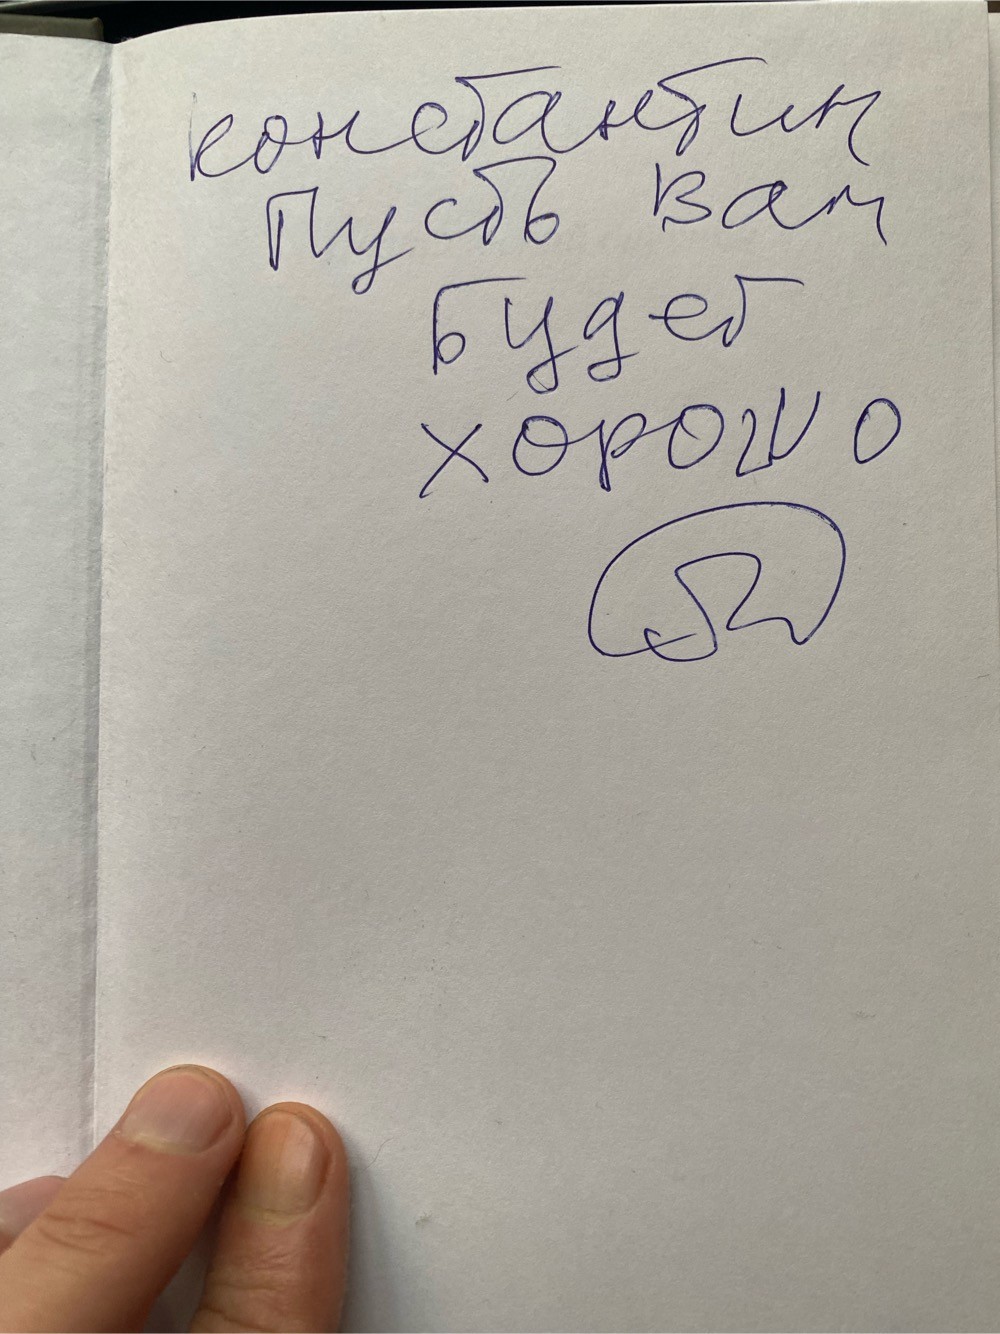 Константин
Пусть Вам
Будет
хорошо